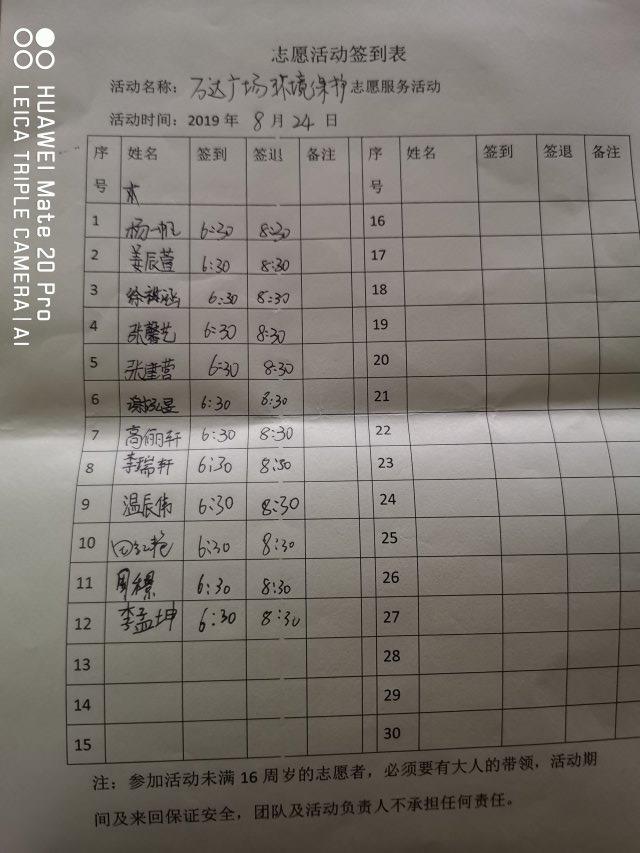 HUAWEI Mate 20 Pro
LEICA TRIPLE CAMERA | AI
志愿活动签到表
活动名称：万达广场环境保护志愿服务活动
活动时间：2019 年 8 月 24 日
序号 姓名 签到 签退 备注 序号 姓名 签到 签退 备注
1 杨一帆 6:30 8:30 16
2 姜辰萱 6:30 8:30 17
3 徐涵 6:30 8:30 18
4 张馨艺 6:30 8:30 19
5 张萱 6:30 8:30 20
6 谢 6:30 8:30 21
7 高俪轩 6:30 8:30 22
8 李瑞轩 6:30 8:30 23
9 温辰伟 6:30 8:30 24
10 田红艳 6:30 8:30 25
11 周 6:30 8:30 26
12 李孟坤 6:30 8:30 27
13 28
14 29
15 30
注：参加活动未满 16 周岁的志愿者，必须要有大人的带领，活动期
间及来回保证安全，团队及活动负责人不承担任何责任。